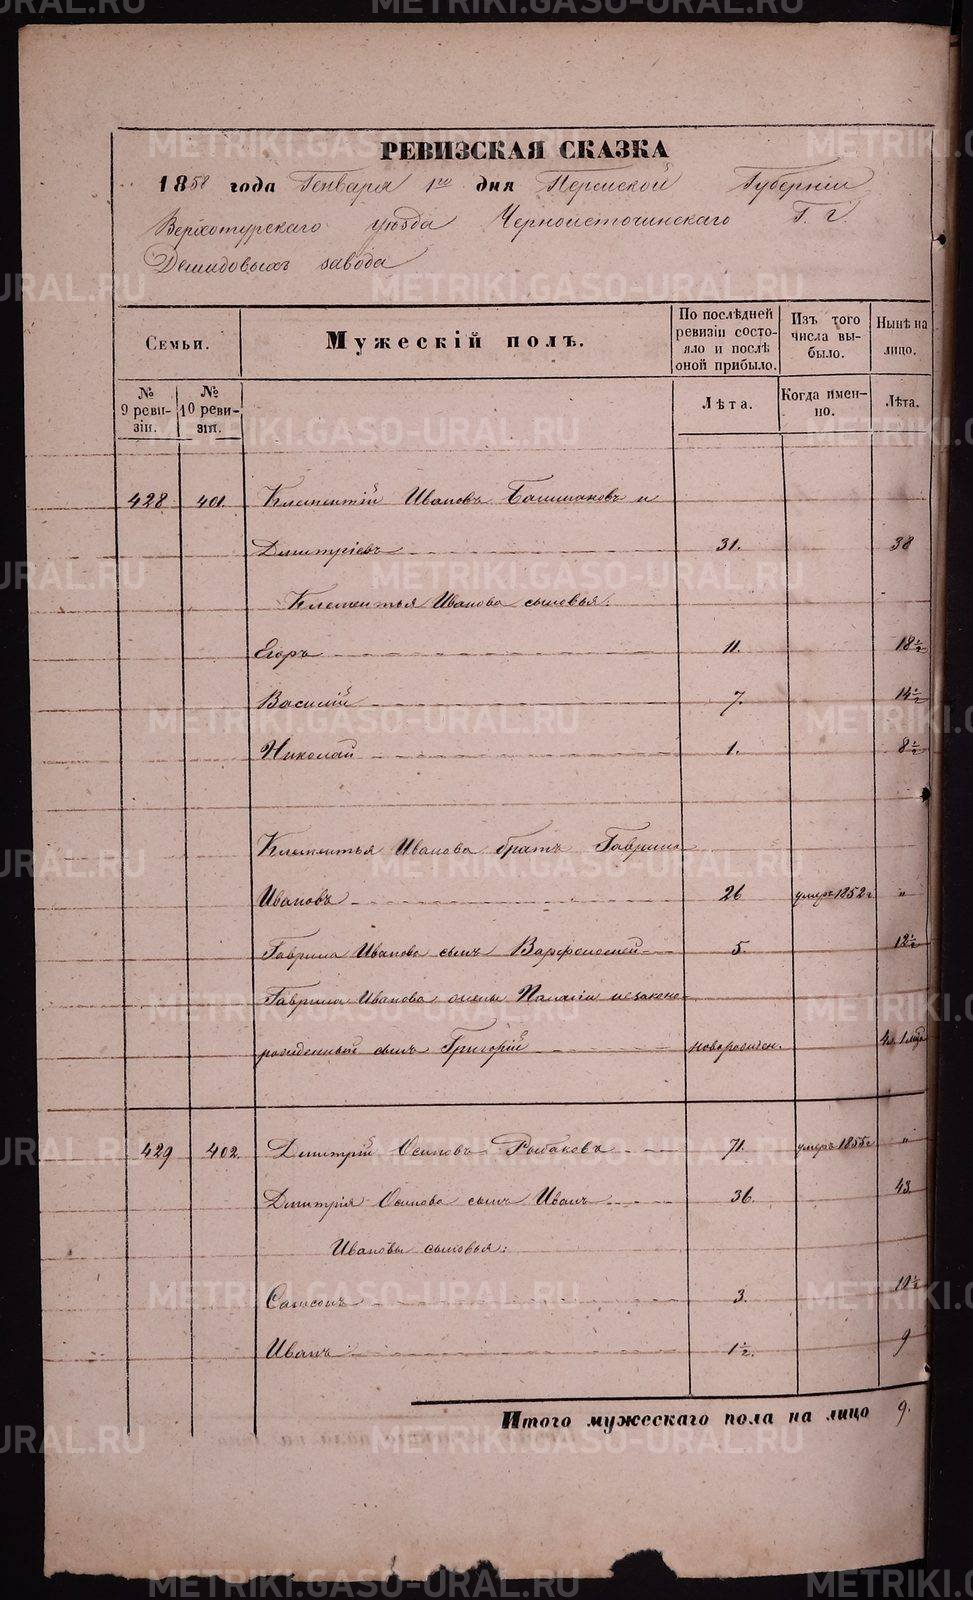 РЕВИЗСКАЯ СКАЗКА
1858 года Генваря 1го дня Пермской Губерніи
Верхотурскаго уѣзда Черноисточинскаго Г. г.
Демидовыхъ завода
Семьи.
Мужескій полъ.
По послѣдней ревизіи состояло и послѣ оной прибыло.
Изъ того числа выбыло.
Нынѣ на лицо.
№ 9 ревизіи.
№ 10 ревизіи.
Лѣта.
Когда именно.
Лѣта.
428 401 Клементій Ивановъ Башмаковъ и
Дмитріевъ 31. 38
Клементья Иванова сыновья:
Егоръ 11. 18½
Василій 7. 14½
Николай 1. 8½
Клементья Иванова братъ Гаврило
Ивановъ 26 умеръ 1852 г "
Гаврила Иванова сынъ Варфоломей 5. 12½
Гаврила Иванова жены Палагіи незаконно-
рожденный сынъ Григорій новорожден.
429 402. Дмитрій Осиповъ Рыбаковъ 71. умеръ 1855 г "
Дмитрія Осипова сынъ Иванъ 36. 43.
Ивановы сыновья:
Самсонъ 3. 10½
Иванъ 1½. 9
Итого мужескаго пола на лицо 9.
METRIKI.GASO-URAL.RU